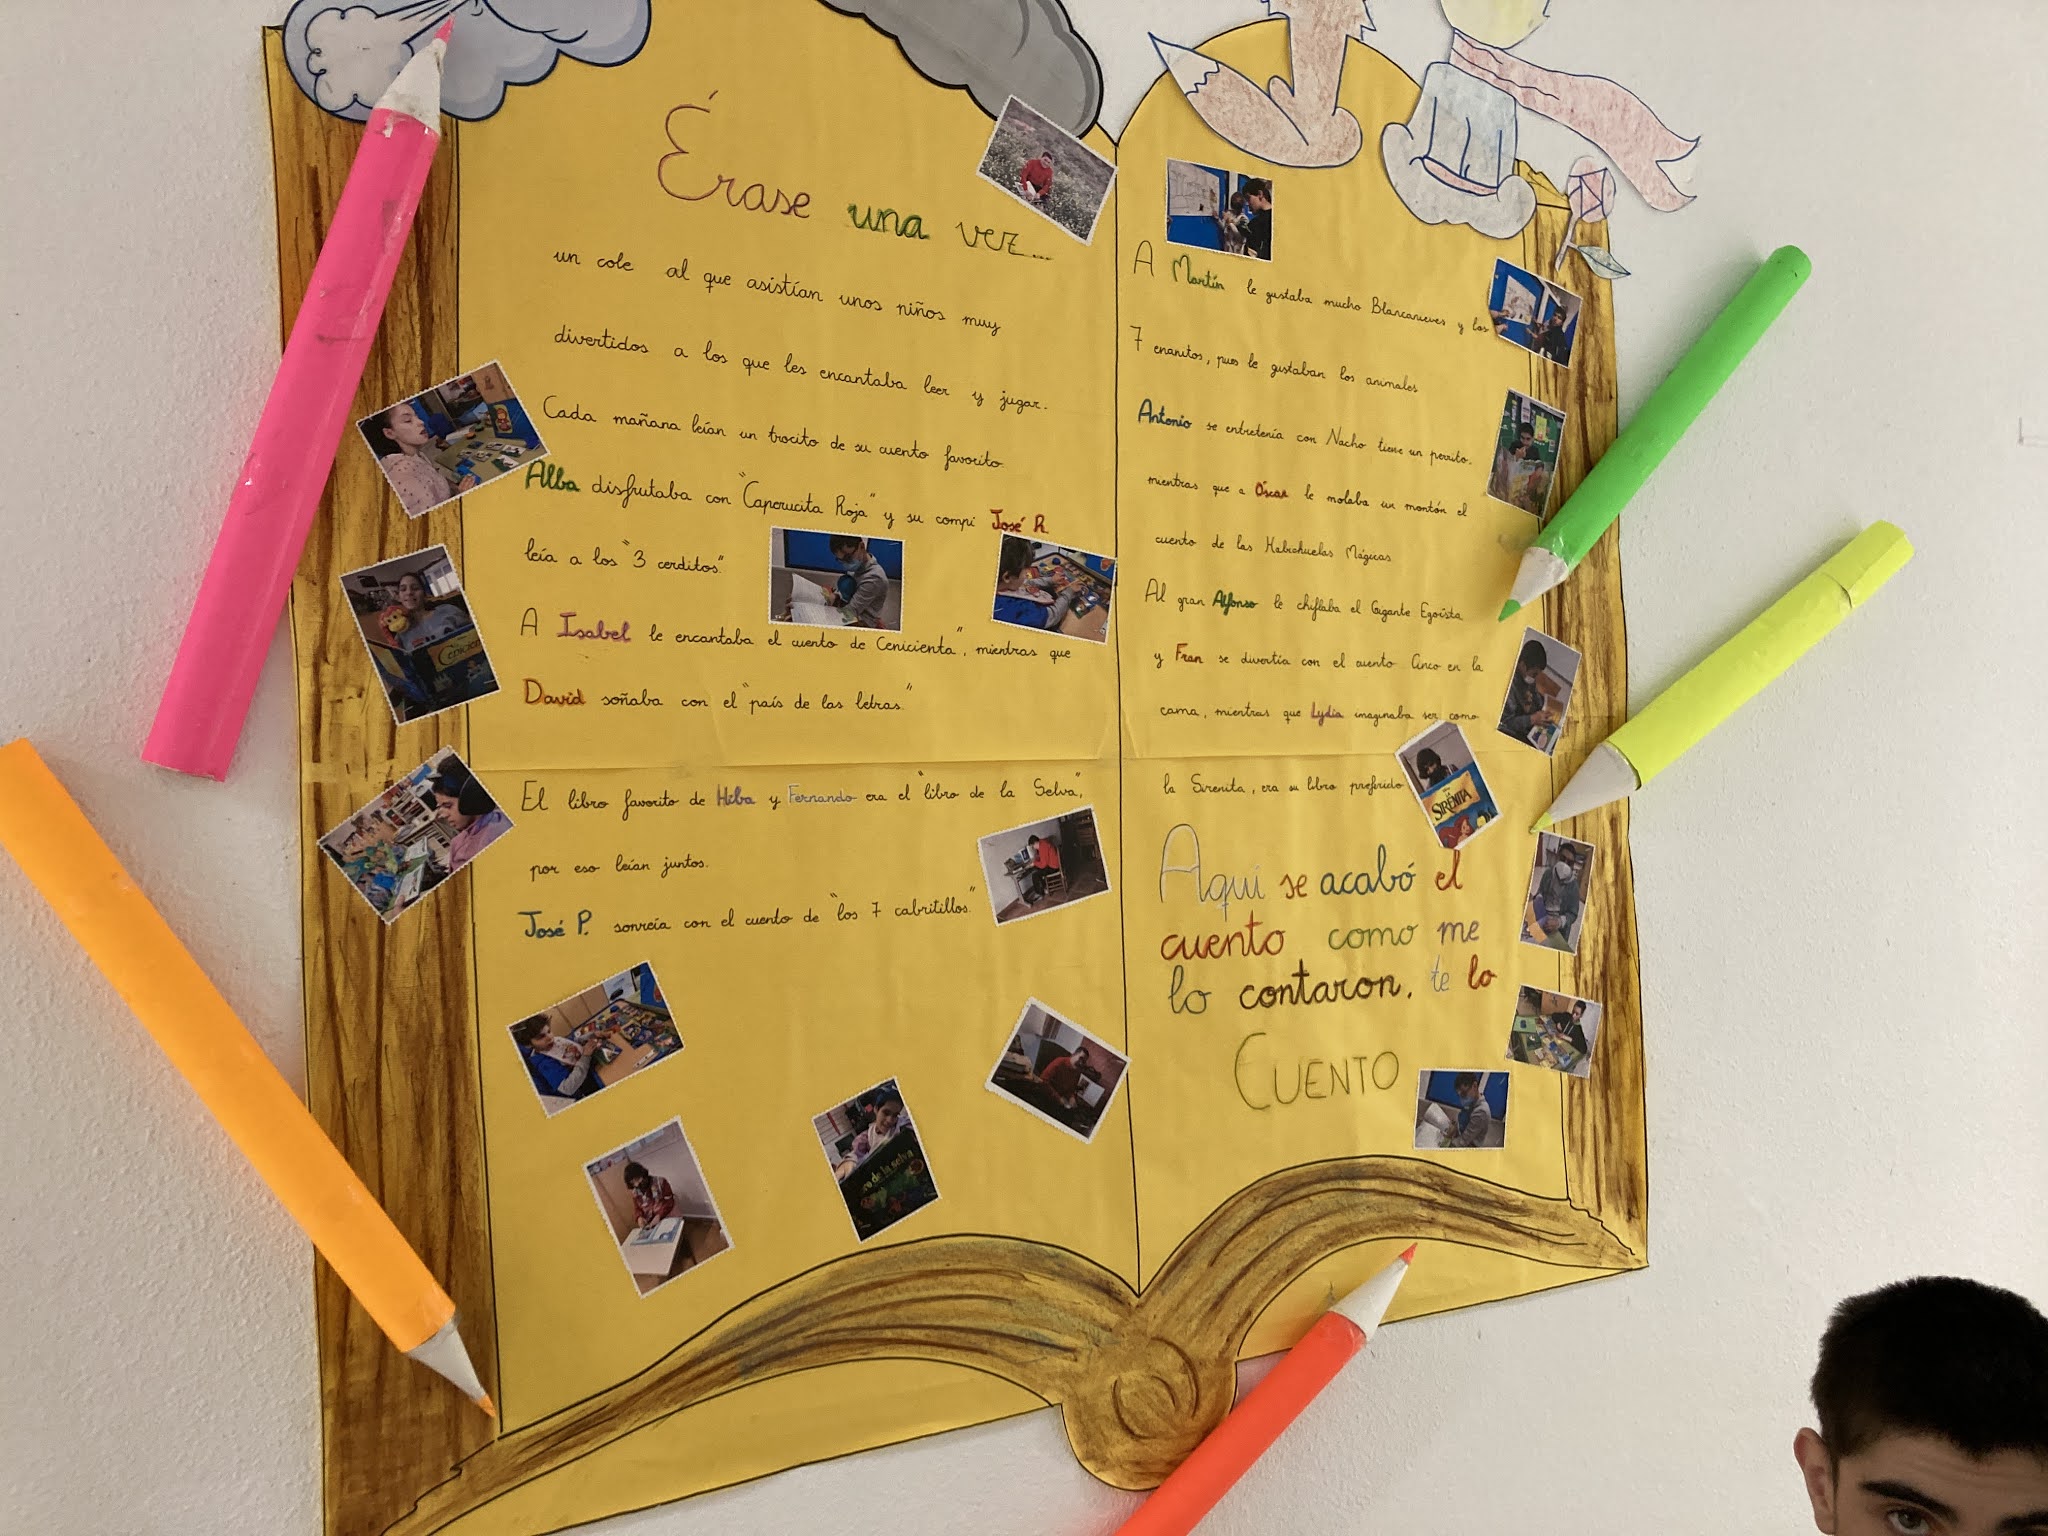 Érase una vez...
un cole al que asistían unos niños muy
divertidos a los que les encantaba leer y jugar.
Cada mañana leían un trocito de su cuento favorito.
Alba disfrutaba con "Caperucita Roja" y su compi José R.
leía a los "3 cerditos".
A Isabel le encantaba el cuento de Cenicienta", mientras que
David soñaba con el "país de las letras."
El libro favorito de Hiba y Fernando era el "libro de la Selva",
por eso leían juntos.
José P. sonreía con el cuento de "los 7 cabritillos."
A Martín le gustaba mucho Blancanieves y los
7 enanitos, pues le gustaban los animales
Antonio se entretenía con Nacho tiene un perrito.
mientras que a Óscar le molaba un montón el
cuento de las Habichuelas Mágicas
Al gran Alfonso le chiflaba el Gigante Egoísta
y Fran se divertía con el cuento Cinco en la
cama, mientras que Lydia imaginaba ser como
la Sirenita, era su libro preferido
LA SIRENITA
Aquí se acabó el
cuento como me
lo contaron, te lo
CUENTO
de la selva